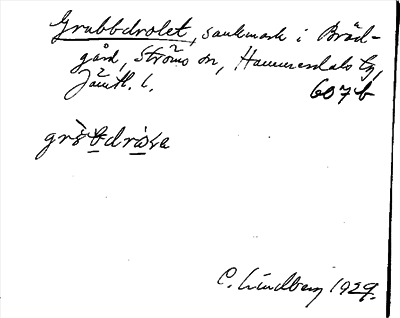 Grubbdrolet, sankmark i Bräd-
gård, Ströms sn, Hammerdals tg,
Jämtl. l. 607b
C. Lindberg 1929.